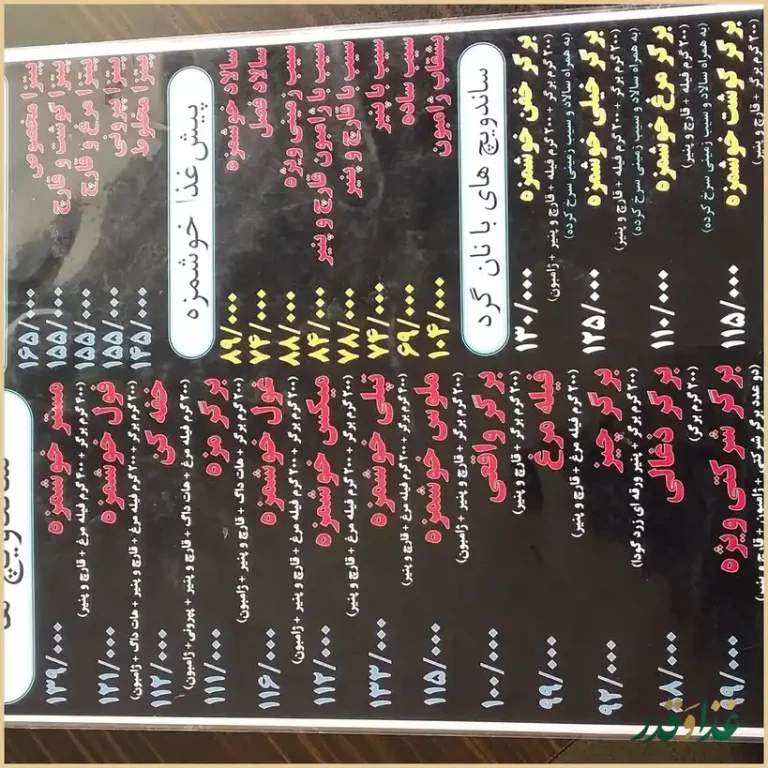 پیتزا مخصوص ۱۶۵/۰۰۰
پیتزا گوشت و قارچ ۱۵۵/۰۰۰
پیتزا مرغ و قارچ ۱۵۵/۰۰۰
پیتزا پپرونی ۱۵۵/۰۰۰
پیتزا مخلوط ۱۴۵/۰۰۰
پیش غذا خوشمزه
سالاد خوشمزه ۸۹/۰۰۰
سالاد فصل ۷۴/۰۰۰
سیب زمینی ویژه ۸۸/۰۰۰
سیب با ژامبون قارچ و پنیر ۸۴/۰۰۰
سیب با قارچ و پنیر ۷۸/۰۰۰
سیب با پنیر ۷۴/۰۰۰
سیب ساده ۶۹/۰۰۰
بشقاب ژامبون ۱۰۴/۰۰۰
ساندویچ های با نان گرد
برگر خفن خوشمزه ۱۳۰/۰۰۰
(۲۰۰ گرم برگر + ۲۰۰ گرم فیله + قارچ و پنیر + ژامبون)
(به همراه سالاد و سیب زمینی سرخ کرده)
برگر خیلی خوشمزه ۱۲۵/۰۰۰
(۲۰۰ گرم برگر + ۲۰۰ گرم فیله + قارچ و پنیر)
(به همراه سالاد و سیب زمینی سرخ کرده)
برگر مرغ خوشمزه ۱۱۰/۰۰۰
(۲۰۰ گرم فیله + قارچ و پنیر)
(به همراه سالاد و سیب زمینی سرخ کرده)
برگر گوشت خوشمزه ۱۱۵/۰۰۰
(۲۰۰ گرم برگر + قارچ و پنیر)
مستر خوشمزه ۱۳۹/۰۰۰
(۲۰۰ گرم برگر + ۲۰۰ گرم فیله مرغ + قارچ و پنیر)
فول خوشمزه ۱۲۱/۰۰۰
(۲۰۰ گرم برگر + ۲۰۰ گرم فیله مرغ + قارچ و پنیر + هات داگ + ژامبون)
خفه کن ۱۱۲/۰۰۰
(۲۰۰ گرم فیله مرغ + هات داگ + قارچ و پنیر + پپرونی + ژامبون)
برگر مزه ۱۱۱/۰۰۰
(۲۰۰ گرم برگر + هات داگ + قارچ و پنیر + ژامبون)
غول خوشمزه ۱۱۶/۰۰۰
(۲۰۰ گرم برگر + ۲۰۰ گرم فیله مرغ + قارچ و پنیر + ژامبون)
میکس خوشمزه ۱۱۲/۰۰۰
(۲۰۰ گرم برگر + ۲۰۰ گرم فیله مرغ + قارچ و پنیر)
تپلی خوشمزه ۱۳۳/۰۰۰
(۲۰۰ گرم برگر + ۲۰۰ گرم فیله مرغ + قارچ و پنیر)
ملوس خوشمزه ۱۱۵/۰۰۰
(۲۰۰ گرم برگر + قارچ و پنیر + ژامبون)
برگر واقعی ۱۰۰/۰۰۰
(۲۰۰ گرم برگر + قارچ و پنیر)
فیله مرغ ۹۹/۰۰۰
(۲۰۰ گرم فیله مرغ + قارچ و پنیر)
برگر چیز ۹۲/۰۰۰
(۲۰۰ گرم برگر + پنیر ورقه ای زرد گودا)
برگر ذغالی ۸/۰۰۰
(۲۰۰ گرم برگر)
برگر شرکتی ویژه ۹/۰۰۰
(دو عدد برگر شرکتی + ژامبون + قارچ و پنیر)
غذا و قدر